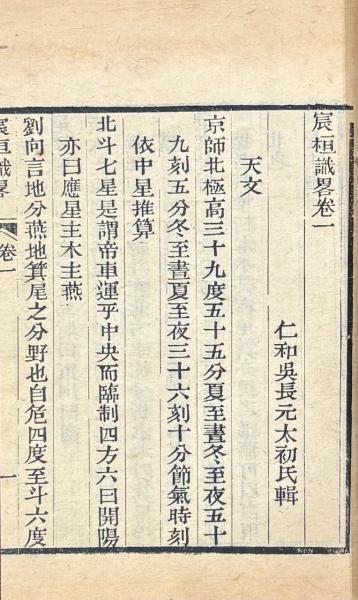 宸垣識畧卷一
仁和吳長元太初氏輯
天文
京師北極高三十九度五十五分夏至晝冬至夜五十
九刻五分冬至晝夏至夜三十六刻十分節氣時刻
依中星推算
北斗七星是謂帝車運乎中央而臨制四方六曰開陽
亦曰應星主木主燕
劉向言地分燕地箕尾之分野也自危四度至斗六度
宸垣識畧
卷一
一